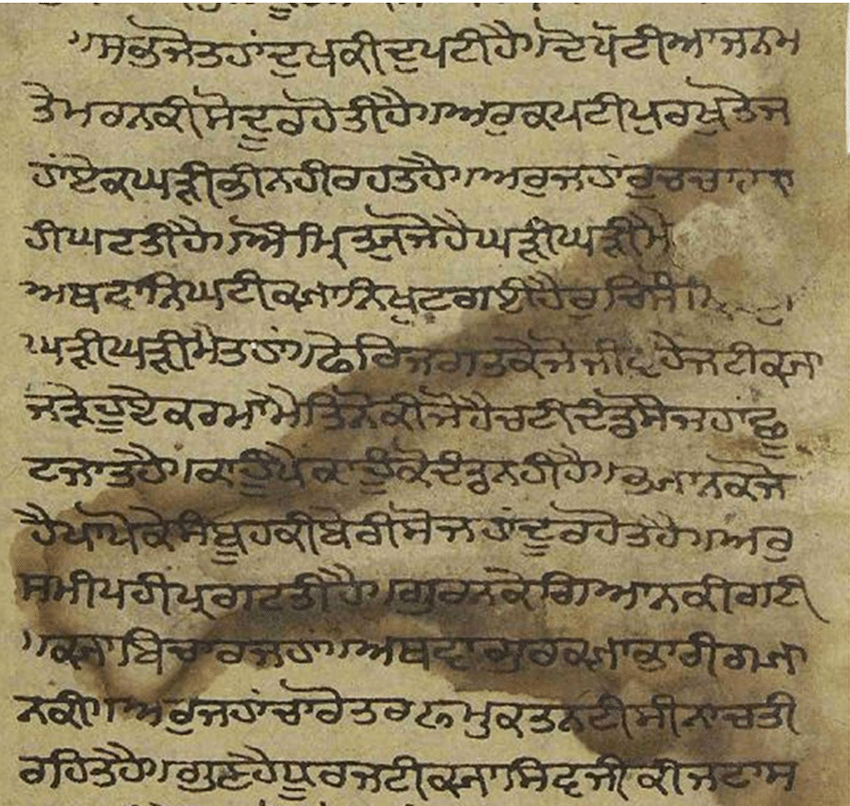 ਸਭਜੋਤਹਾਂਦੁਖਕੀਦੁਪਟੀਹੈ।ਦੋਪੱਟੀਆਜਨਮ
ਤੇਮਰਨਕੀਸੋਦੂਰਹੋਤੀਹੈ।ਅਰੁਕਪਟੀਪੁਰਖੁਤੋਜ
ਹਾਂਏਕਘੜੀਭੀਨਹੀਰਹਤੋਹੈ।ਅਰੁਜਹਾਂਰੁਚ
ਹੀਘਟਤੀਹੈ।ਔਮ੍ਰਿਤੁਜੋਹੈਘੜੀਘੜੀਮੈ
ਅਬਦਾਨਿਘਟੀਕ੍ਯਾਨਿਖੁਟਗਈਹੈ
ਘੜੀਘੜੀਮੈਤਹਾਂ।ਫੇਰਿਜਗਤਕੇਜੋਜੀਵਹੈਜਟੀਕ੍ਯਾ
ਜੜੇਹੂਏਕਰਮੋਮੈਤਿਨੋਕੀਜੋਹੈਚਟੀਦੰਡੁਸੋਜਹਾਂਛੂ
ਟਜਾਤੁਹੈ।ਕਾਹੂਪੈਕਾਹੂਕੋਦੰਡੁਨਹੀਹੈ।ਗ੍ਯਾਨਕੋਜੋ
ਹੈਪਾਪੋਕੇਸੰਬੂਹਕੀਬੇਰੀਸੋਜਹਾਂਦੂਰਹੋਤਹੈ।ਅਰੁ
ਸਮੀਪਹੀਪ੍ਰਗਟਤੀਹੈ।ਗੁਰਨਕੇਗਿਆਨਕੀਗਟੀ
।ਕ੍ਯਾਬਿਚਾਰਜਹਾਂ।ਅਬਦਾਗੁਰਕ੍ਯਾਭਾਰੀਗ੍ਯਾ
ਨਕੀ।ਅਰੁਜਹਾਂਚਾਰੋਤਰਨਮੁਕਤਨਟੀਸੀਨਾਚਤੀ
ਰਹਿਤੀਹੈ।ਗੁਣਹੈਧੂਰਜਟੀਕ੍ਯਾਸਿਵਜੀਕੀਜਟਾਸ